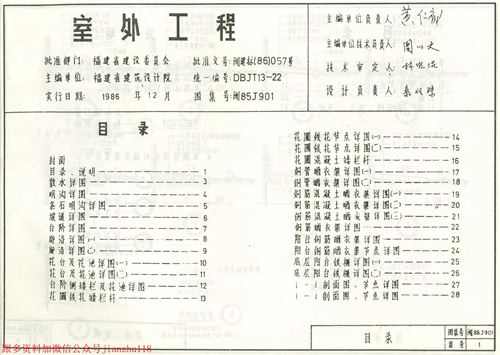 室外工程
批准部门: 福建省建设委员会 批准文号: 闽建标(86)057号
主编单位: 福建省建筑设计院 统一编号: DBJT13-22
实行日期: 1986 年 12 月 图集号: 闽85J901
主编单位负责人:
主编单位技术负责人:
技术审定人:
设计负责人:
目录
封面
目录、说明 1
散水详图 3
明沟详图 4
条石明沟详图 5
坡道详图 6
台阶详图 7
踏沿详图(一) 8
踏沿详图(二) 9
花台及花池详图(一) 10
花台及花池详图(二) 11
台阶侧矮栏及花池详图 12
花圃铁花矮栏杆 13
花圃铁花节点详图(一) 14
花圃铁花节点详图(二) 15
花圃混凝土矮栏杆 16
钢管晒衣架详图(一) 17
钢管晒衣架详图(二) 18
钢筋混凝土晒衣架详图(一) 19
钢筋混凝土晒衣架详图(二) 20
钢筋混凝土晒衣架详图(三) 21
钢筋晒衣架详图 22
阳台钢筋晒衣架详图 23
阳台钢筋晒衣架节点详图 24
底层阳台铁栅详图(一) 25
底层阳台铁栅详图(二) 26
1-1剖面图、详图 27
1-1剖面图、节点详图 28
目录
图集号 闽85J901
图号 1
跟多资料加微信公众号jianzhu118